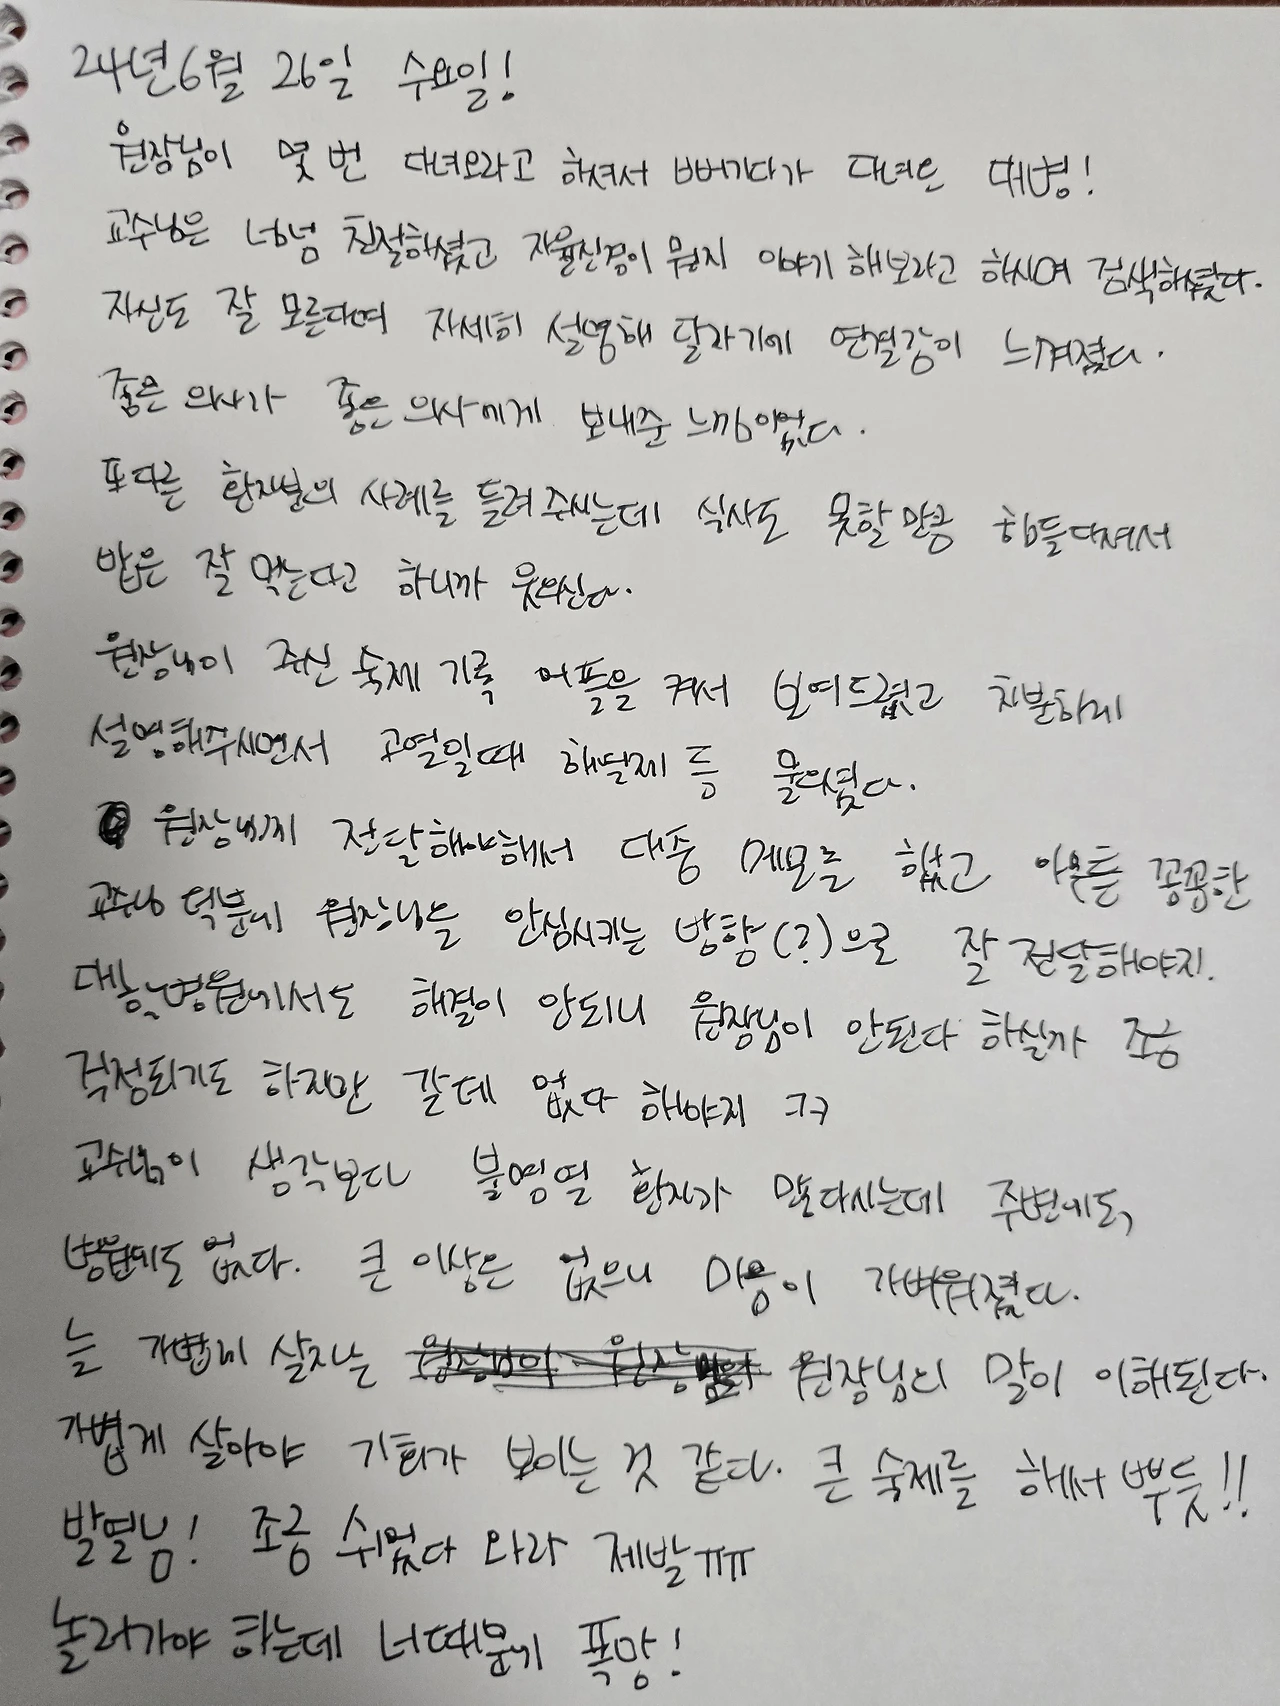 24년 6월 26일 수요일!
원장님이 몇 번 다녀오라고 하셔서 뻐기다가 다녀온 대병!
교수님은 너넘 친절하셨고 자율신경이 뭔지 이야기 해보라고 하시며 검색하셨다.
자신도 잘 모른다며 자세히 설명해 달라기에 연결감이 느껴졌다.
좋은 의사가 좋은 의사에게 보내준 느낌이었다.
또다른 환자분의 사례를 들려주시는데 식사도 못할 만큼 힘들다셔서
밥은 잘 먹는다고 하니까 웃으신다.
원장님이 주신 숙제 기록 어플을 켜서 보여드렸고 차분하게
설명해주시면서 고열일때 해열제 등 물으셨다.
원장님께 전달해야해서 대충 메모를 했고 아무튼 꼼꼼한
교수님 덕분에 원장님을 안심시키는 방향(?)으로 잘 전달해야지.
대학병원에서도 해결이 안되니 원장님이 안된다 하실까 조금
걱정되기도 하지만 갈데 없다 해야지 ㅋㅋ
교수님이 생각보다 불명열 환자가 많다시는데 주변에도,
병원에도 없다. 큰 이상은 없으니 마음이 가벼워졌다.
늘 가볍게 살자는 원장님의 말이 이해된다.
가볍게 살아야 기회가 보이는 것 같다. 큰 숙제를 해서 뿌듯!!
발열님! 조금 쉬었다 와라 제발ㅠㅠ
놀러가야 하는데 너때문에 폭망!